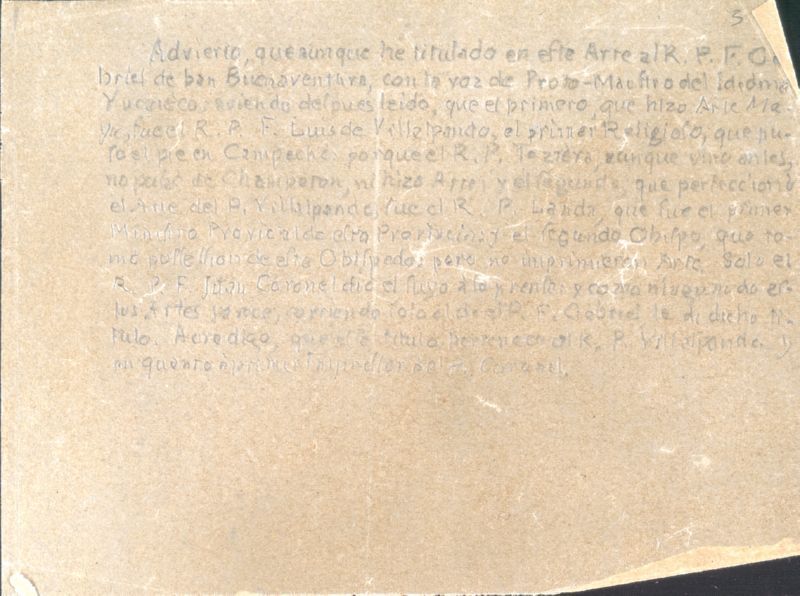 5
Advierto, que aunque he titulado en este Arte al R. P. F. Ga
briel de san Buenaventura, con la voz de Proto-Maestro del Idioma
Yucateco; aviendo despues leido, que el primero, que hizo Arte Ma-
ya, fue el R. P. F. Luis de Villalpando, el primer Religioso, que pu-
so el pie en Campeche; porque el R. P. Testera, aunque vino antes,
no passò de Champoton, ni hizo Arte; y el segundo, que perfeccionò
el Arte del P. Villalpando, fue el R. P. Landa, que fue el primer
Ministro Provincial de esta Provincia; y el segundo Obispo, que to-
mò possession de este Obispado; pero no imprimieron Arte. Solo el
R. P. F. Juan Coronel diò el suyo a la prensa; y como ninguno de es-
tos Artes parece, corriendo solo el de el R. P. F. Gabriel le di dicho ti-
tulo. Aora digo, que este titulo pertenece al R. P. Villalpando. y
en quanto à primer Impressor al R. Coronel.